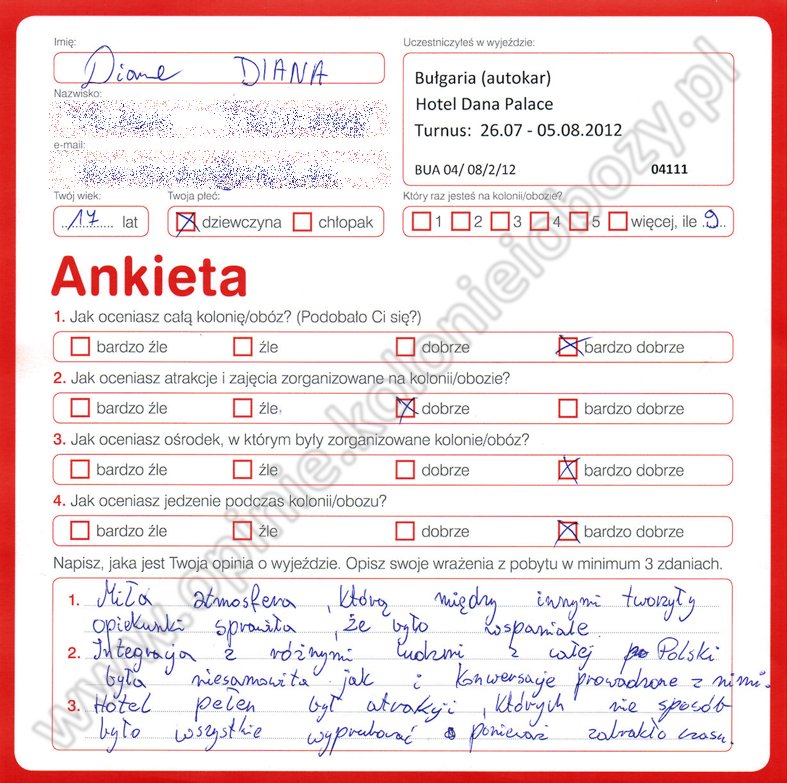 Imię:
Diana DIANA
Nazwisko:
e-mail:
Twój wiek:
17 lat
Twoja płeć:
dziewczyna chłopak
Uczestniczyłeś w wyjeździe:
Bułgaria (autokar)
Hotel Dana Palace
Turnus: 26.07 - 05.08.2012
BUA 04/ 08/2/12 04111
Który raz jesteś na kolonii/obozie?
1 2 3 4 5 więcej, ile 9
Ankieta
1. Jak oceniasz całą kolonię/obóz? (Podobało Ci się?)
bardzo źle źle dobrze bardzo dobrze
2. Jak oceniasz atrakcje i zajęcia zorganizowane na kolonii/obozie?
bardzo źle źle dobrze bardzo dobrze
3. Jak oceniasz ośrodek, w którym były zorganizowane kolonie/obóz?
bardzo źle źle dobrze bardzo dobrze
4. Jak oceniasz jedzenie podczas kolonii/obozu?
bardzo źle źle dobrze bardzo dobrze
Napisz, jaka jest Twoja opinia o wyjeździe. Opisz swoje wrażenia z pobytu w minimum 3 zdaniach.
1. Miła atmosfera, którą między innymi tworzyły
opiekunki sprawiła, że było wspaniale.
2. Integracja z różnymi ludźmi z całej Polski
była niesamowita jak i konwersacje prowadzone z nimi.
3. Hotel pełen był atrakcji, których nie sposób
było wszystkie wypróbować ponieważ zabrakło czasu.
www.opinie.kolonieiobozy.pl